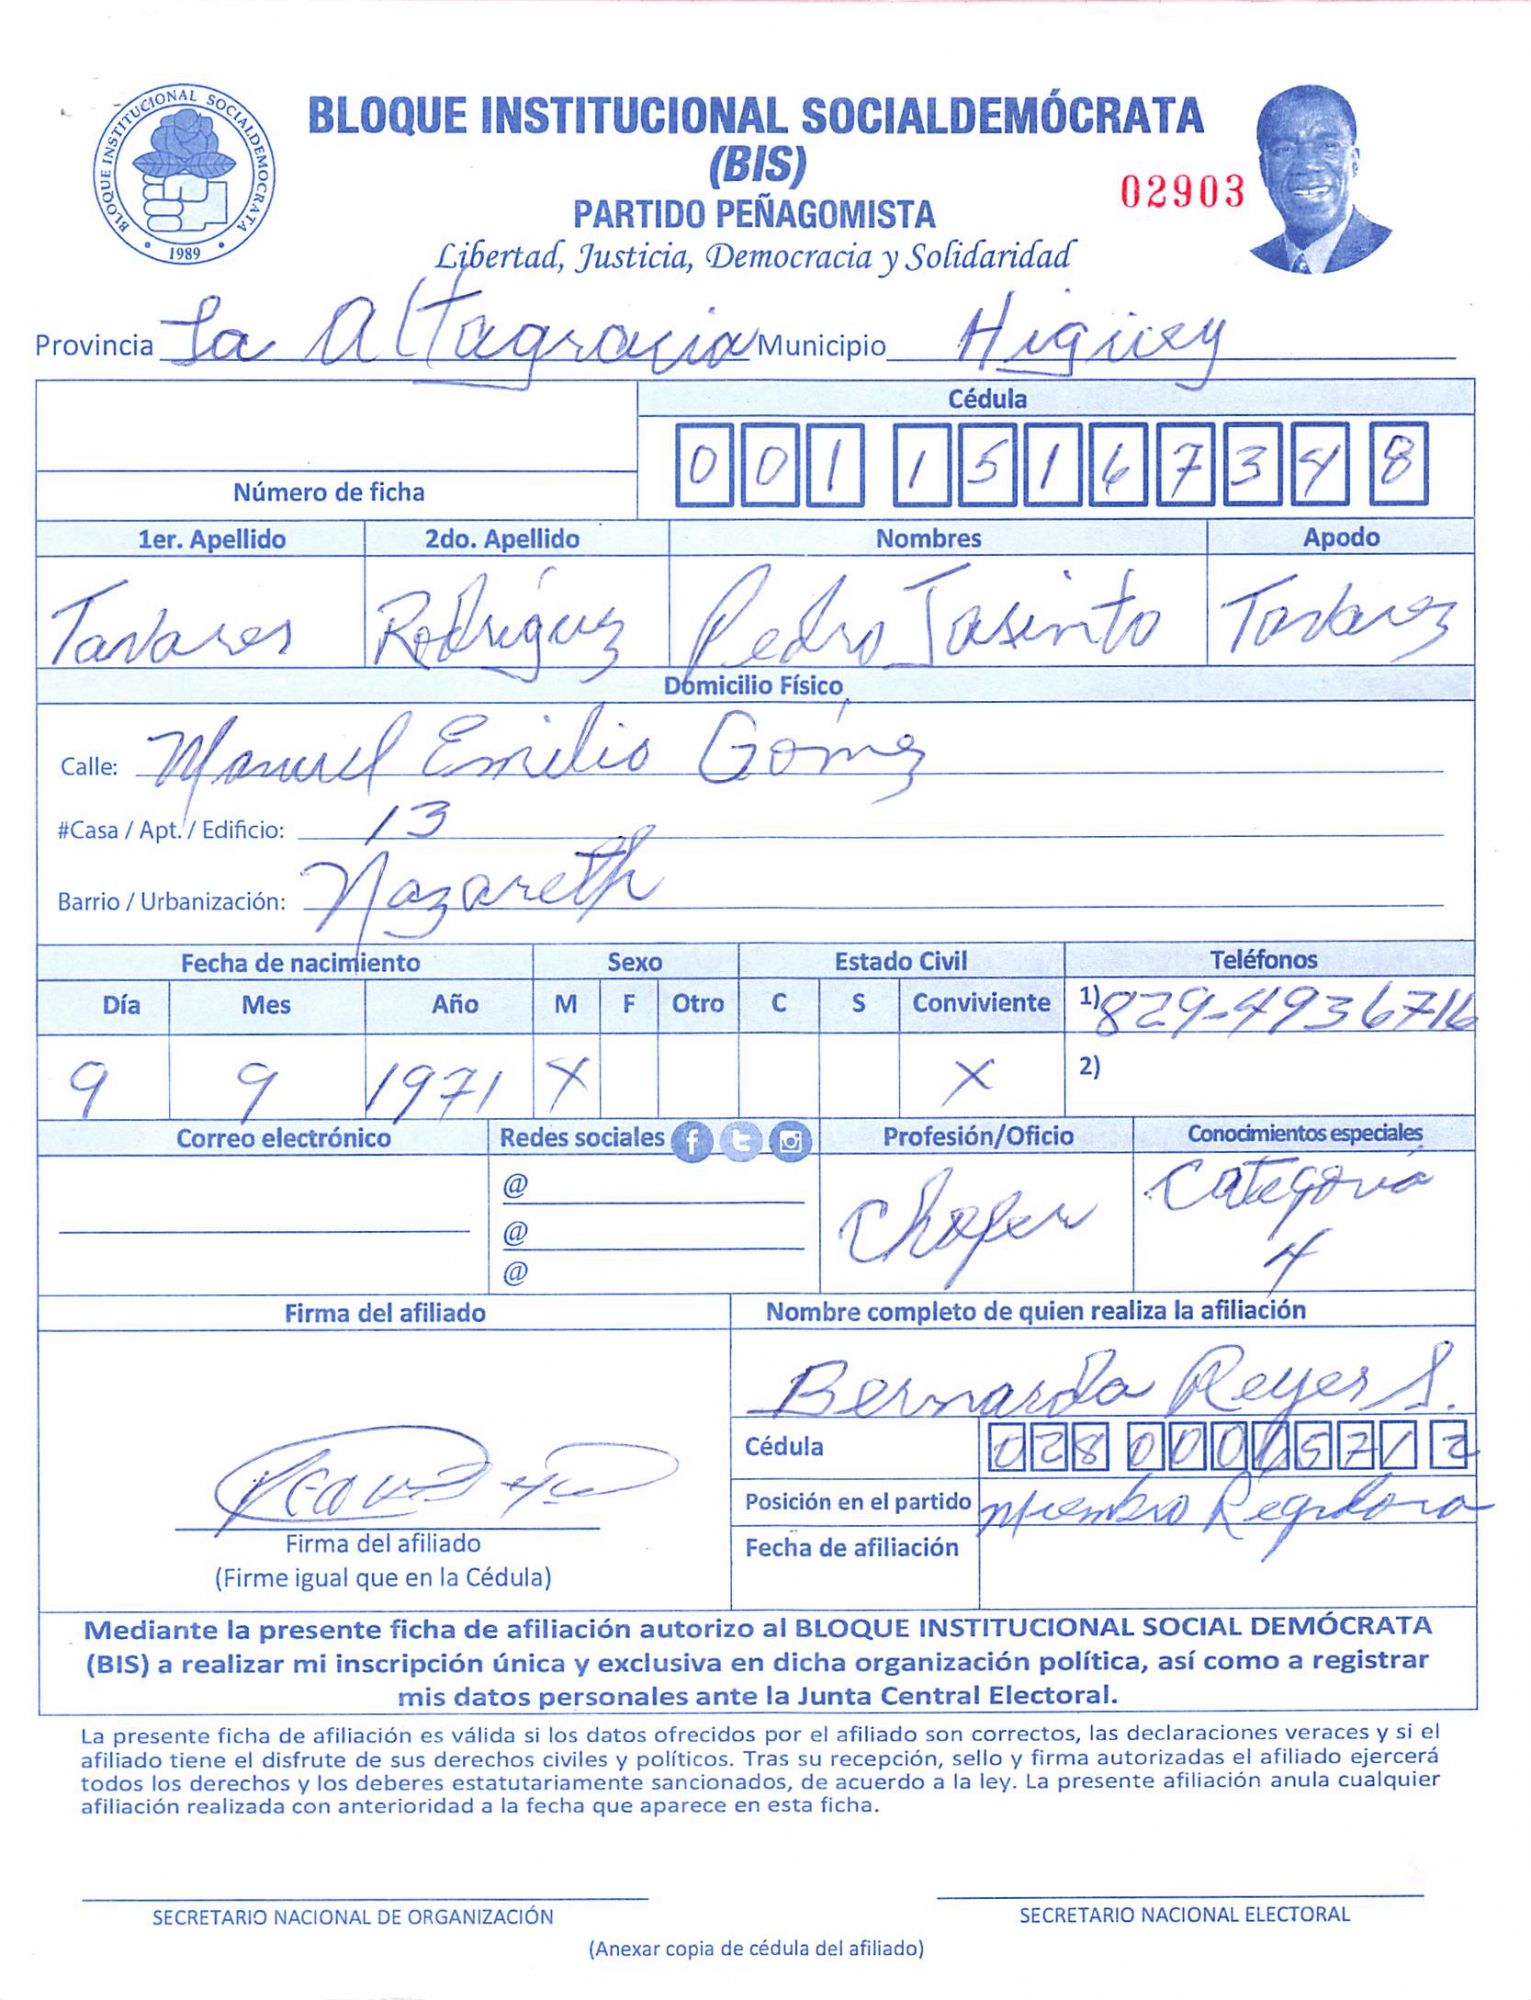 BLOQUE INSTITUCIONAL SOCIALDEMOCRATA
1989
BLOQUE INSTITUCIONAL SOCIALDEMÓCRATA
(BIS)
02903
PARTIDO PEÑAGOMISTA
Libertad, Justicia, Democracia y Solidaridad
Provincia La Altagracia Municipio Higüey
Cédula
0 0 1 1 5 1 6 7 3 4 8
Número de ficha
1er. Apellido 2do. Apellido Nombres Apodo
Tavares Rodríguez Pedro Jasinto Tavarez
Domicilio Físico
Calle: Manuel Emilio Gómez
#Casa / Apt. / Edificio: 13
Barrio / Urbanización: Nazareth
Fecha de nacimiento Sexo Estado Civil Teléfonos
Día Mes Año M F Otro C S Conviviente 1) 829-4936716
9 9 1971 X X 2)
Correo electrónico Redes sociales Profesión/Oficio Conocimientos especiales
@ Chofer Categoría
@ 4
@
Firma del afiliado Nombre completo de quien realiza la afiliación
Bernarda Reyes S.
Cédula 0 2 8 0 0 0 6 5 7 1 2
Posición en el partido Miembro Regidora
Firma del afiliado
Fecha de afiliación
(Firme igual que en la Cédula)
Mediante la presente ficha de afiliación autorizo al BLOQUE INSTITUCIONAL SOCIAL DEMÓCRATA
(BIS) a realizar mi inscripción única y exclusiva en dicha organización política, así como a registrar
mis datos personales ante la Junta Central Electoral.
La presente ficha de afiliación es válida si los datos ofrecidos por el afiliado son correctos, las declaraciones veraces y si el
afiliado tiene el disfrute de sus derechos civiles y políticos. Tras su recepción, sello y firma autorizadas el afiliado ejercerá
todos los derechos y los deberes estatutariamente sancionados, de acuerdo a la ley. La presente afiliación anula cualquier
afiliación realizada con anterioridad a la fecha que aparece en esta ficha.
SECRETARIO NACIONAL DE ORGANIZACIÓN SECRETARIO NACIONAL ELECTORAL
(Anexar copia de cédula del afiliado)